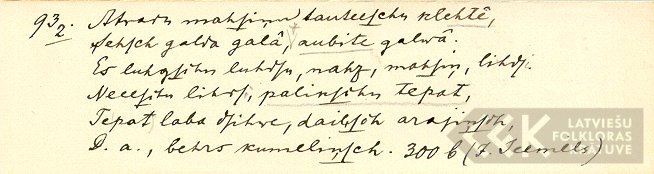 93₂. Atradu mahsiņu tauteeschu klehtē,
Sehsch galda galâ, aubite galwâ.
Es luhgschu luhdsu, nahz, mahsiņ, lihdz.
Neeeschu lihdz, palikschu tepat,
Tepat laba dsihwe, daiļsch arajiņsch,
D. a., behrs kumeliņsch. 300 b (J. Teemelis)
LATVIEŠU
FOLKLORAS
KRĀTUVE